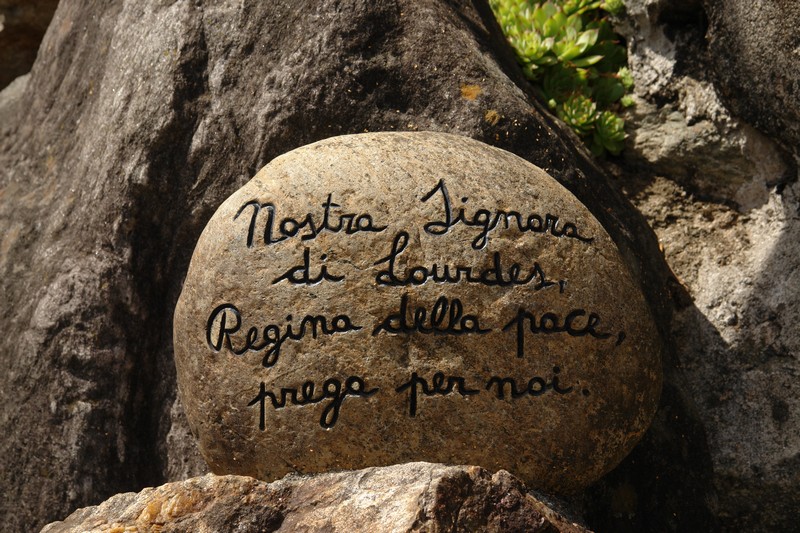 Nostra Signora
di Lourdes,
Regina della pace,
prega per noi.